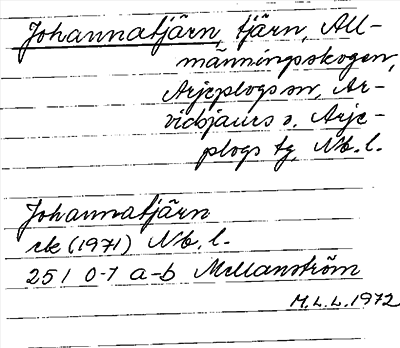 Johannatjärn, tjärn, All-
männingsskogen,
Arjeplogs sn, Ar-
vidsjaurs o. Arje-
plogs tg, Nb. l.
Johannatjärn
rek (1971) Nb. l.
25 I 0-1 a-b Mellanström
M.L.L. 1972